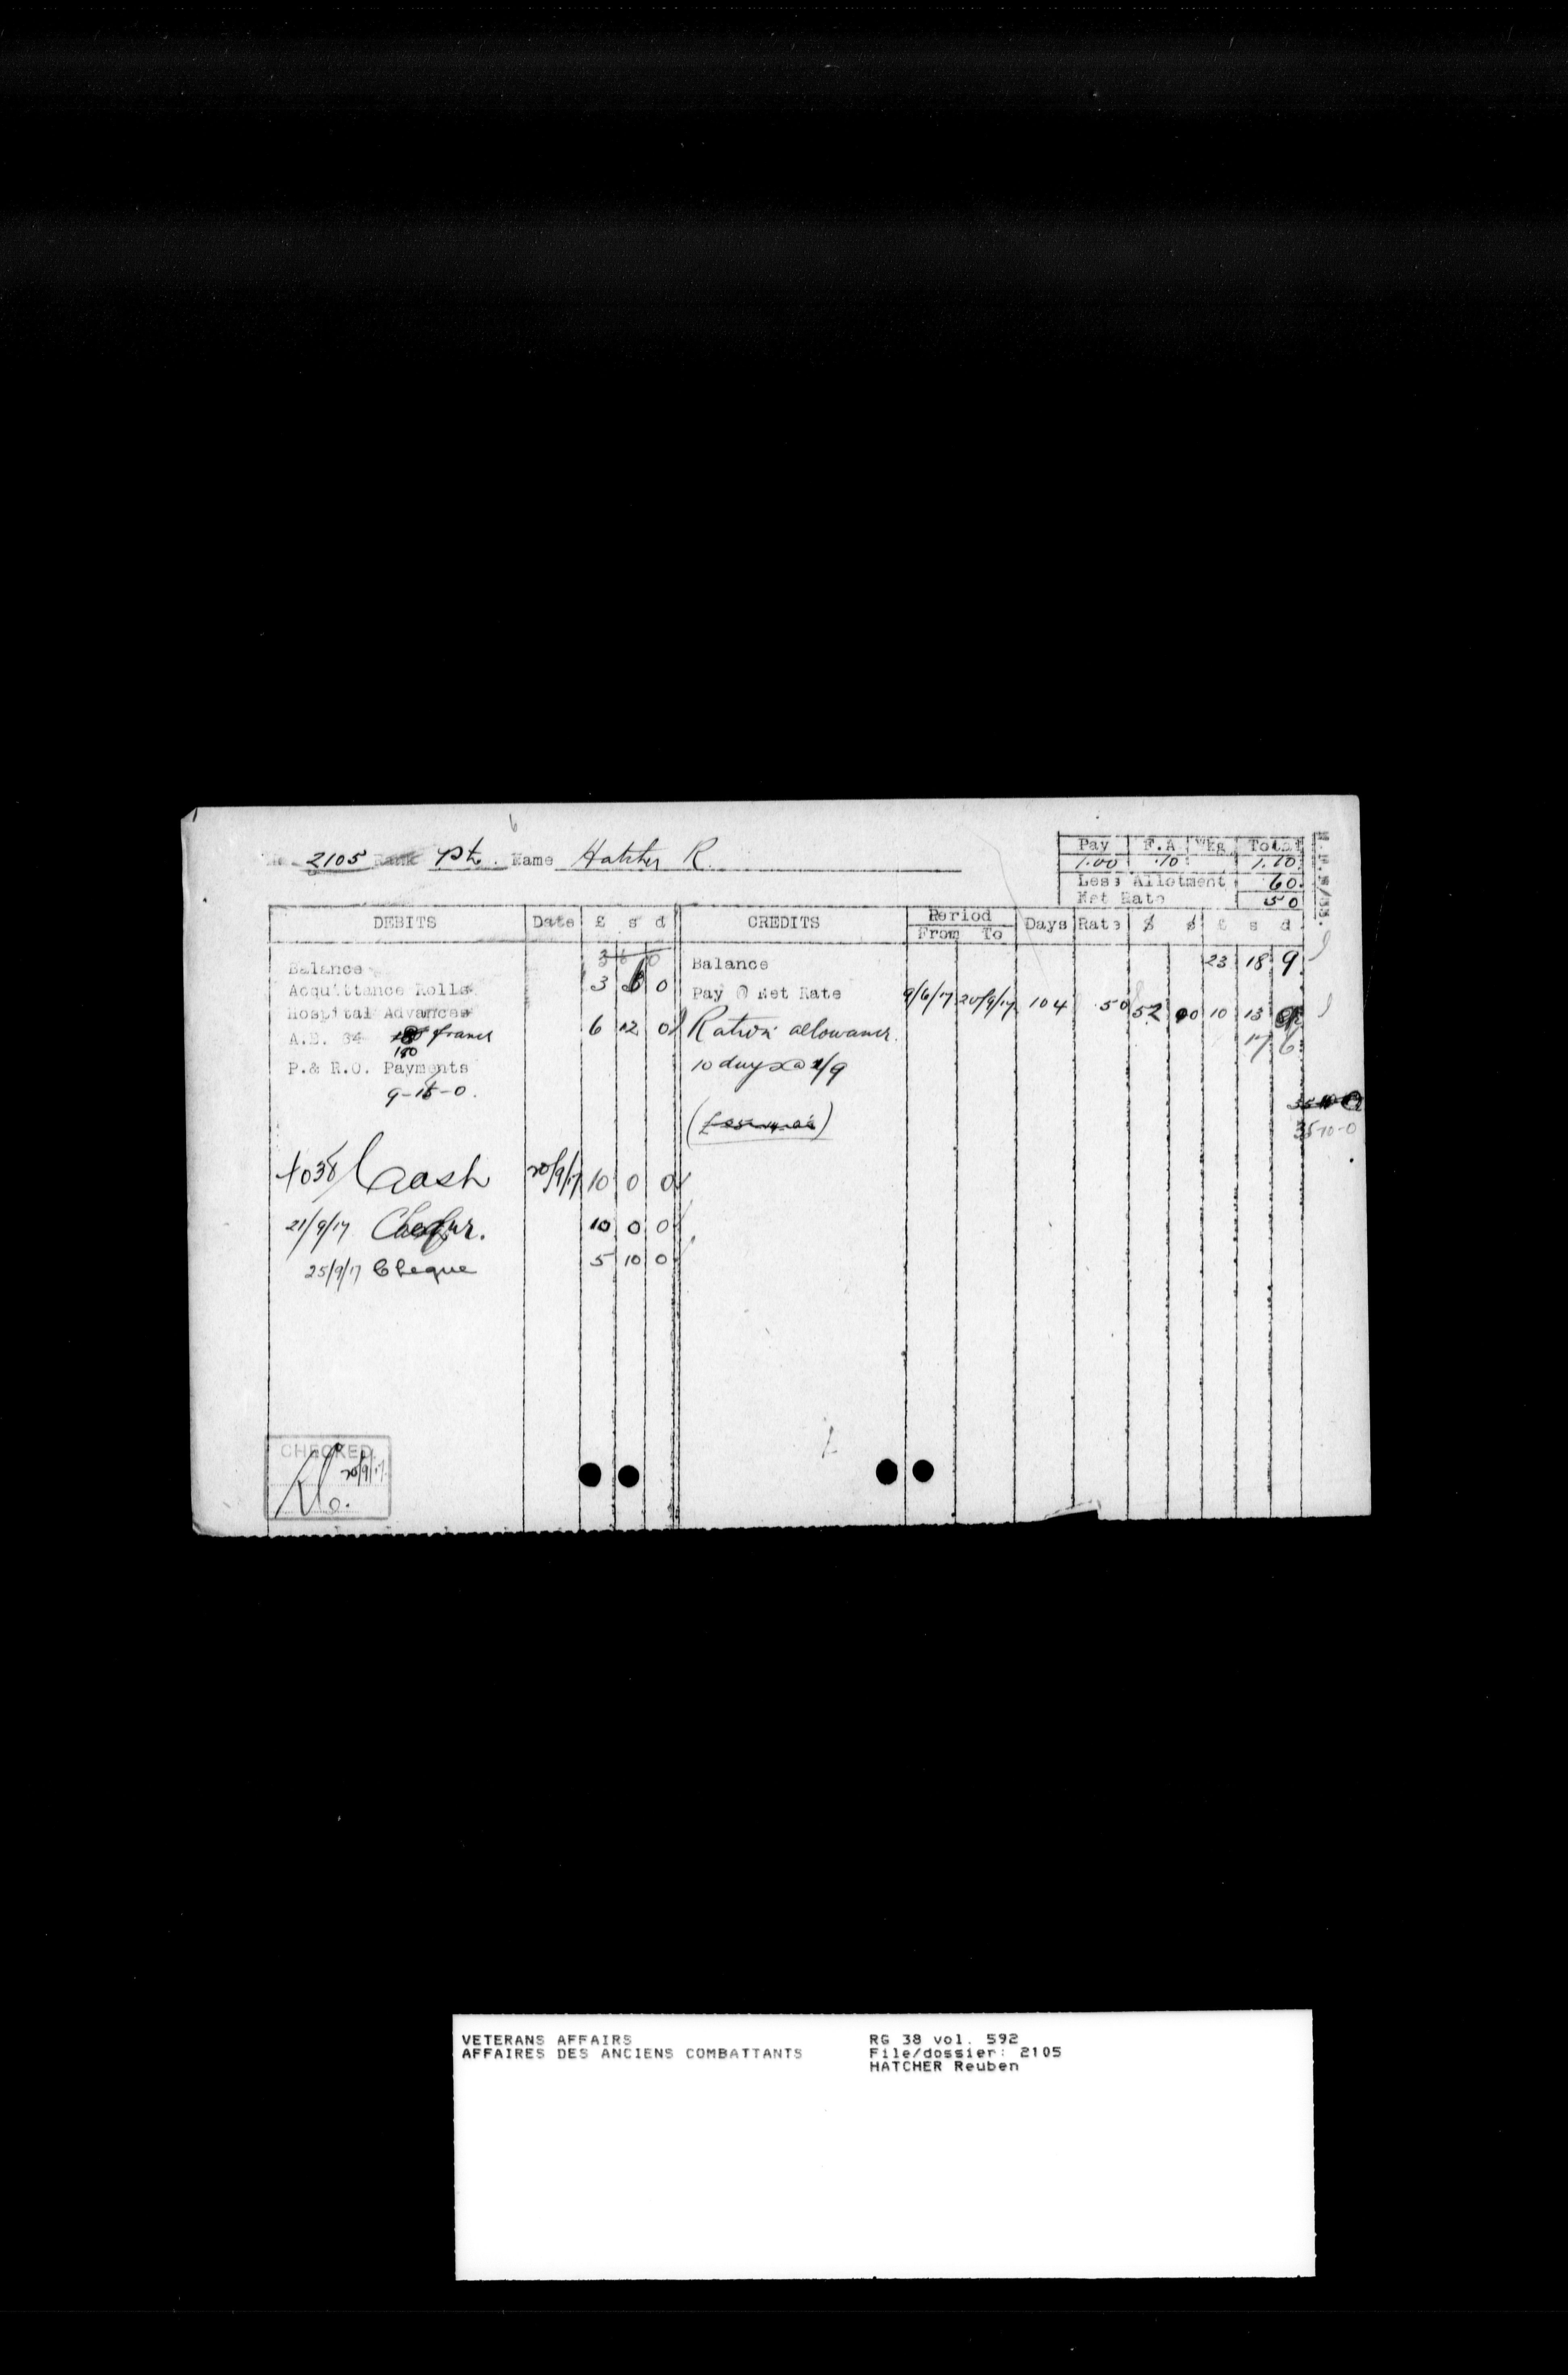 2105 Rank Pte. Name Hatcher R.
Pay F.A. Wkg Total
1.00 .10 1.10
Less Allotment 60
Net Rate 50
DEBITS Date £ s d CREDITS Period From To Days Rate $ ¢ £ s d
3 6 0
Balance Balance 23 18 9
Acquittance Rolls 3 0 Pay @ Net Rate 9/6/17 20/9/17 104 .50 52 00 10 13
Hospital Advances
A.E. 34 francs 6 12 0 Ration allowance. 17 6
180
P.& R.O. Payments 10 days @ 1/9
9-18-0.
35-10-0
Cash 20/9/17 10 0 0
21/9/17 10 0 0
25/9/17 Cheque 5 10 0
CHECKED
20/9/17
VETERANS AFFAIRS
AFFAIRES DES ANCIENS COMBATTANTS
RG 38 vol. 592
File/dossier: 2105
HATCHER Reuben